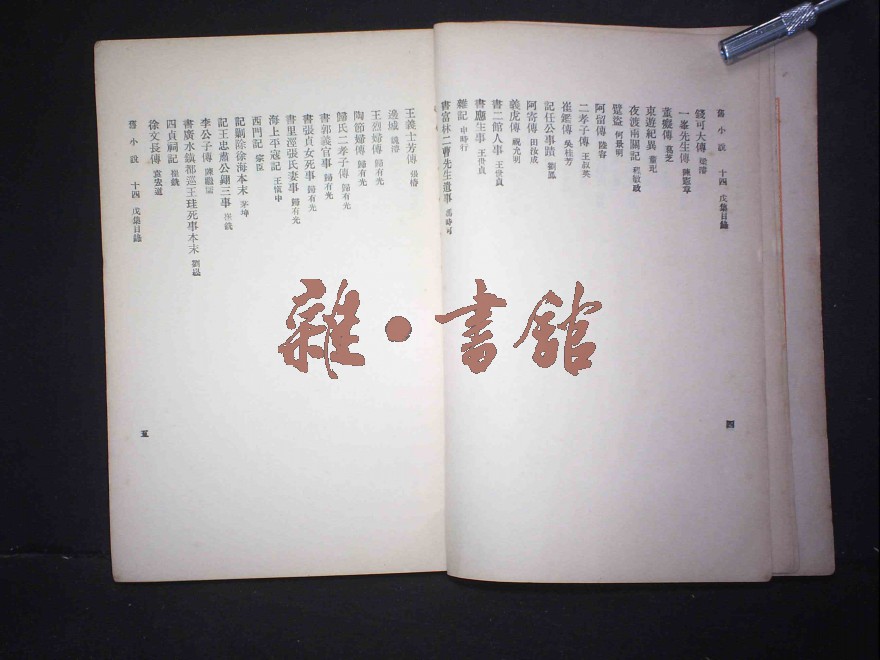 舊小說 十四 戊集目錄
錢可大傳 梁潛
一峯先生傳 陳憲章
董癡傳 葛芝
東遊紀異 董玘
夜渡兩關記 程敏政
躄盜 何景明
阿留傳 陸容
二孝子傳 王叔英
崔鑑傳 吳桂芳
記任公事蹟 劉鳳
阿寄傳 田汝成
義虎傳 祝允明
書二館人事 王世貞
書應生事 王世貞
雜記 申時行
書富林二曹先生遺事 馮時可
四
王義士芳傳 張椿
邊城 魏濬
王烈婦傳 歸有光
陶節婦傳 歸有光
歸氏二孝子傳 歸有光
書郭義官事 歸有光
書張貞女死事 歸有光
書里涇張氏妻事 歸有光
海上平寇記 王慎中
西門記 宗臣
記剿除徐海本末 茅坤
記王忠肅公翱三事 崔銑
李公子傳 陳繼儒
書廣水鎮都巡王珪死事本末
四貞祠記 崔銑
徐文長傳 袁宏道
舊小說 十四 戊集目錄
五
雜·書館